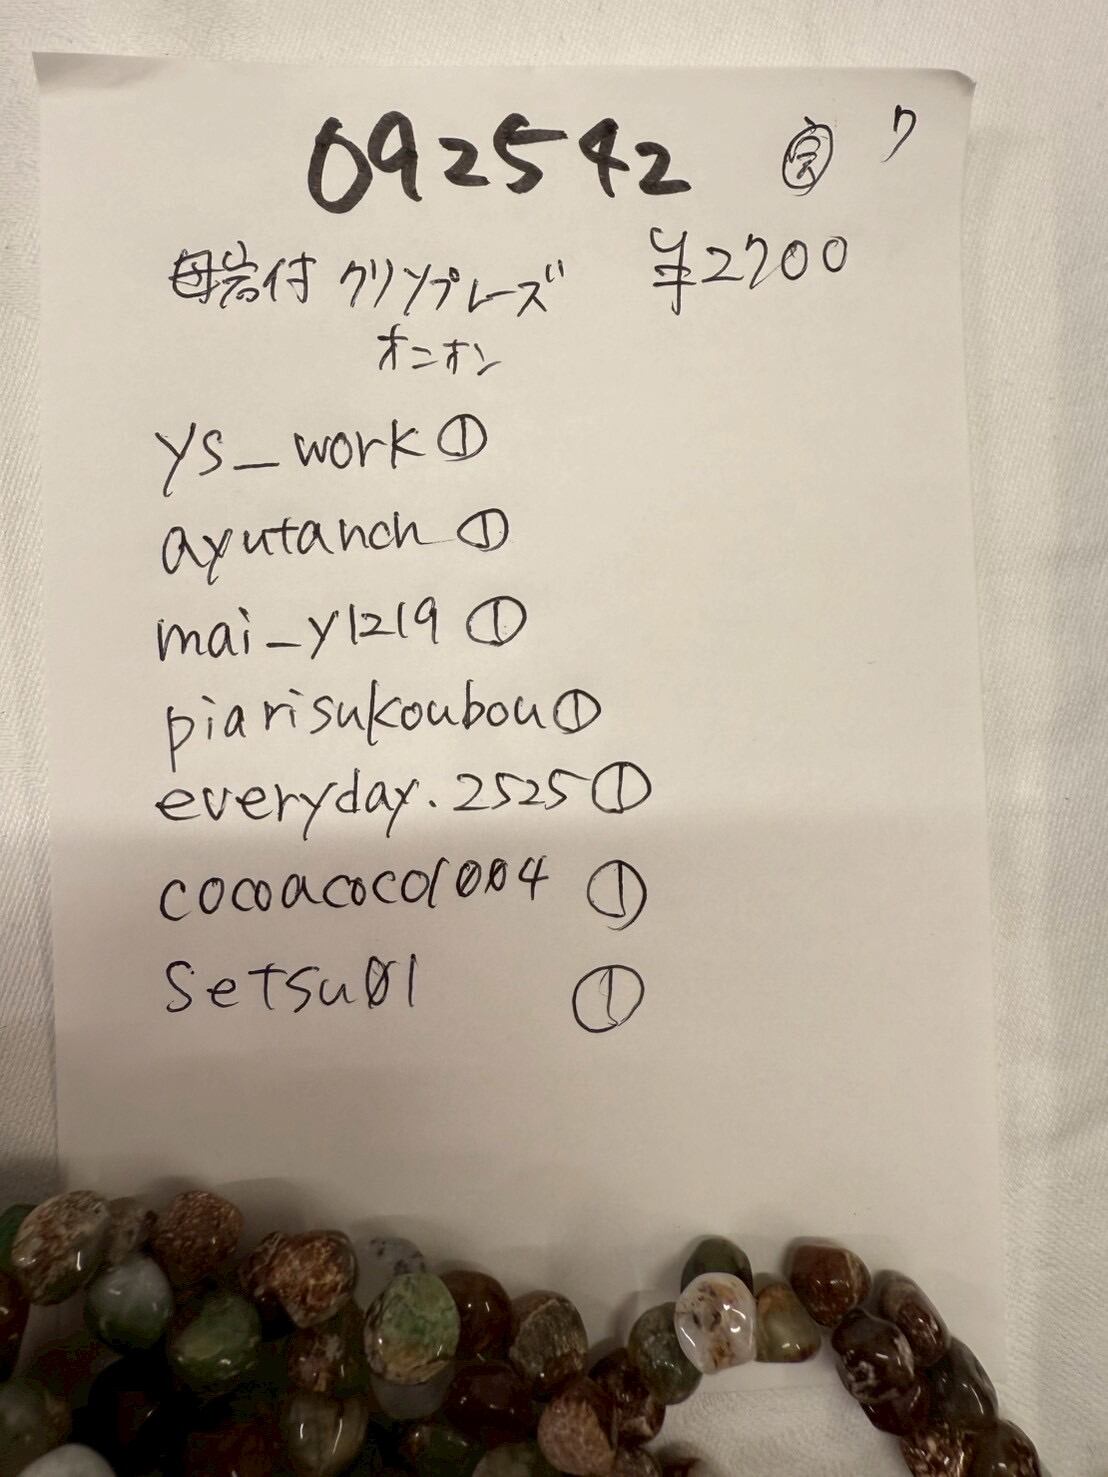 092542 ワ
母岩付 クリソプレーズ ¥2700
オニオン
ys_work①
ayutanch①
mai_y1219①
piarisukoubou①
everyday.2525①
cocoacoco1004①
Setsu01①